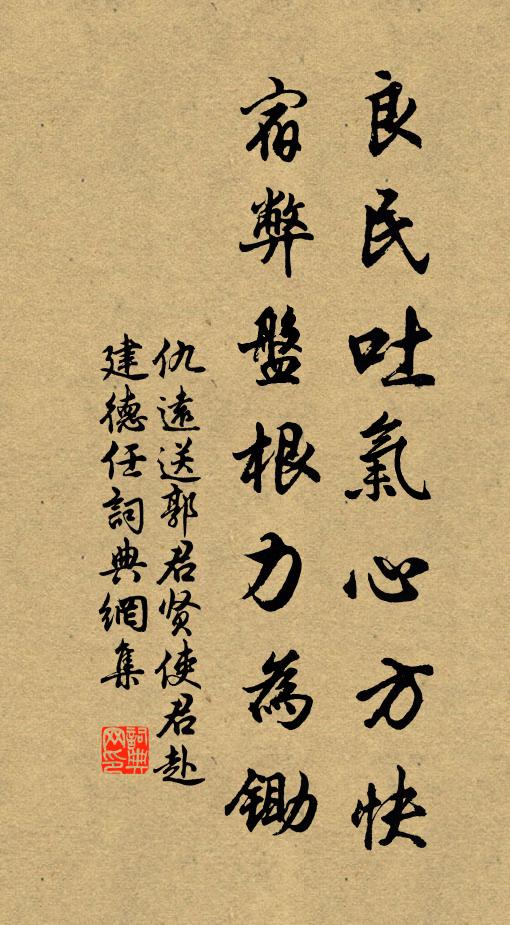 良民吐氣心方快
宿弊盤根力為鋤
仇遠送郭君贤使君赴
建德任詞典網集
詞典
网印